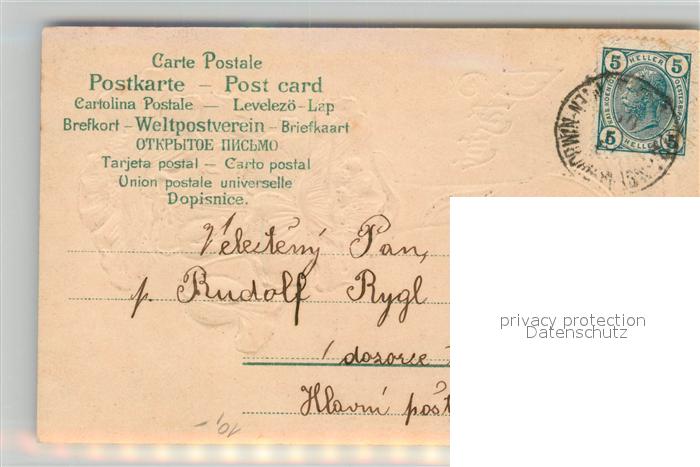 Carte Postale
Postkarte – Post card
Cartolina Postale — Levelezö-Lap
Brefkort – Weltpostverein – Briefkaart
ОТКРЫТОЕ ПИСЬМО
Tarjeta postal – Carto postal
Union postale universelle
Dopisnice.
5 HELLER 5
5 HELLER 5
Velectěný Pan,
p. Rudolf Rygl
dozorce
Hlavní pošt
privacy protection
Datenschutz